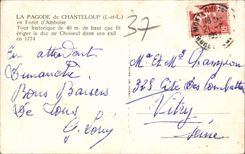 LA PAGODE de CHANTELOUP (I.-et-L.)
en Forêt d'Amboise
Tour historique de 40 m. de haut que fit
ériger le duc de Choiseul dans son exil
en 1774
37
En attendant
Dimanche
Bons Baisers
de tous
Mr et Me Champion
Cité des Combattants
Vitry
Seine